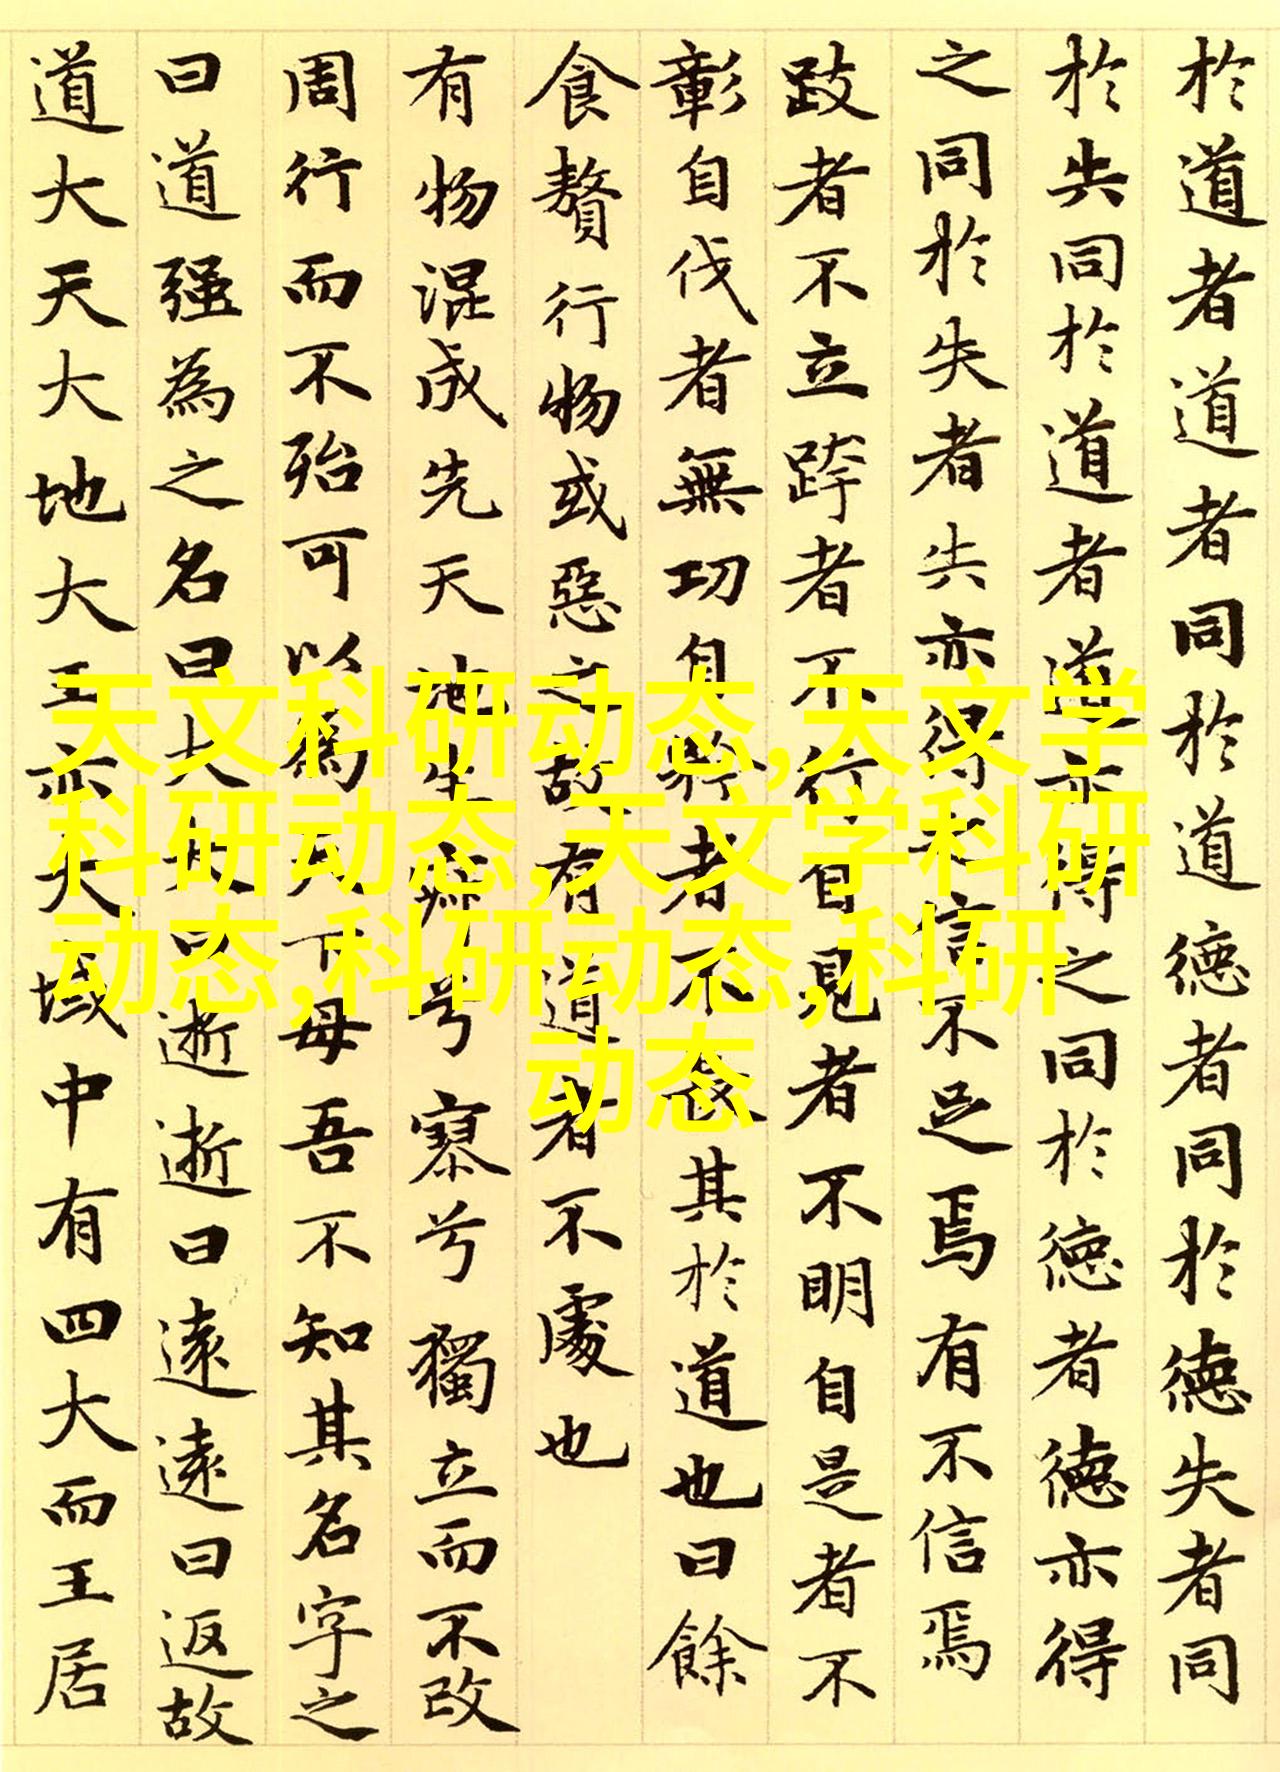 於道者道者同於道德者同於德失者同
於失同於道者道亦得之同於德者德亦得
之同於失者失亦得之信不足焉有不信焉
跂者不立跨者不行自見者不明自是者不
彰自伐者無功自矜者不長其於道也曰餘
食贅行物或惡之故有道者不處也
有物混成先天地生寂兮寥兮獨立而不改
周行而不殆可以為天下母吾不知其名字之
曰道强為之名曰大大曰逝逝曰遠遠曰返故
道大天大地大王亦大域中有四大而王居
天文科研动态,天文学
科研动态,天文学科研
动态,科研动态,科研
动态